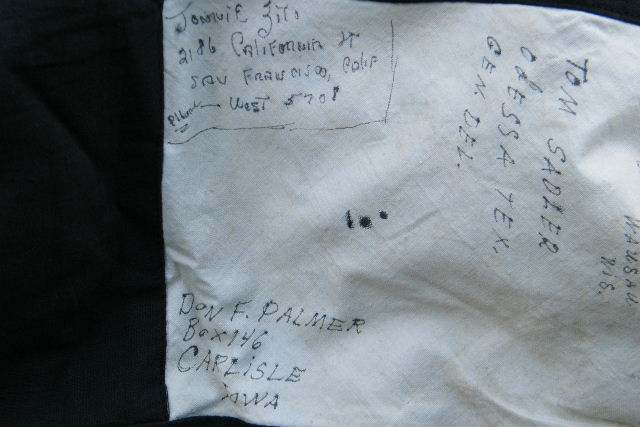 2186 CALIFORNIA ST
SAN FRANCISCO, CALIF
WEST 5708
TOM SADLER
ODESSA TEX.
GEN. DEL.
WAUSAU
WIS.
DON F. PALMER
BOX 146
CARLISLE
IOWA